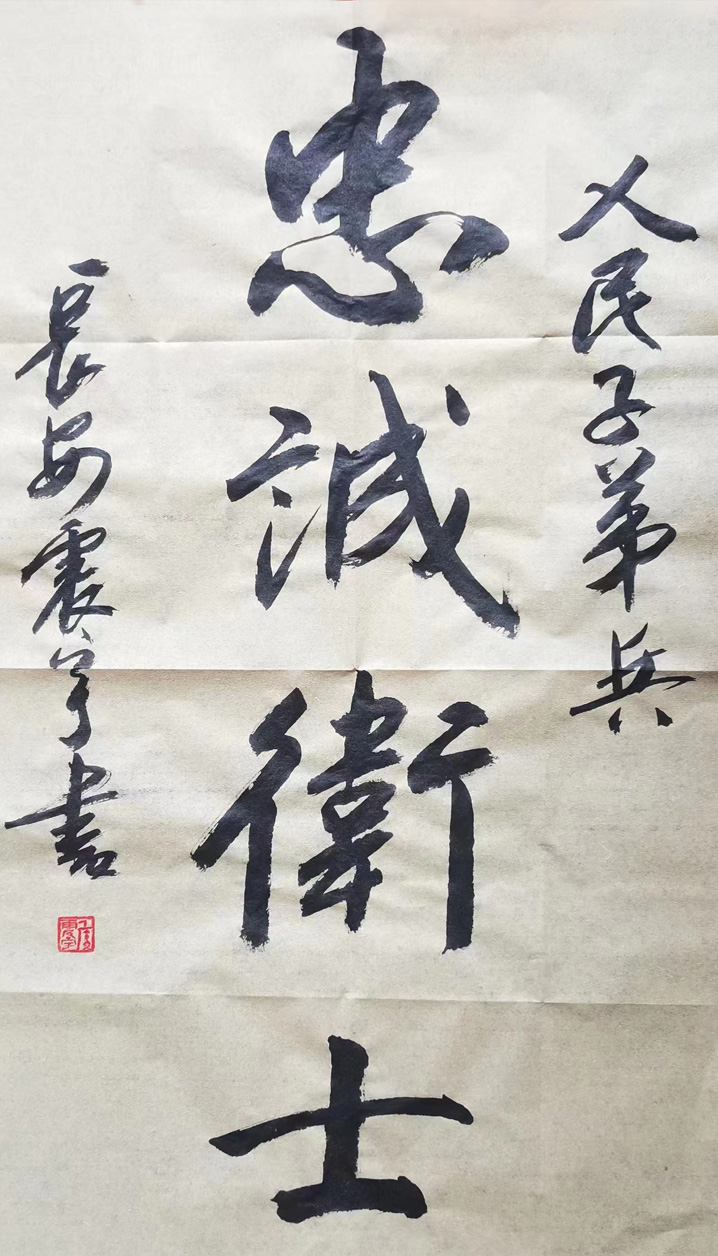 人民子弟兵
忠誠衛士
長安震宇書